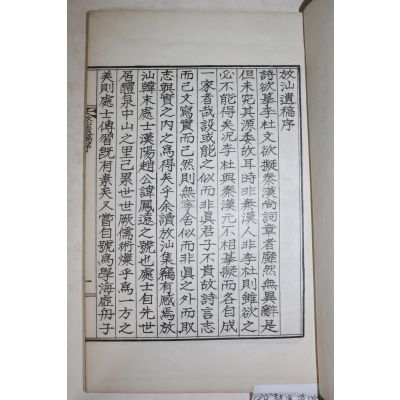 放汕遺稿序
詩欲摹李杜文欲擬秦漢尚詞章者靡然無異辭是
但未究其源委故耳時非秦漢人非李杜則雖欲之
必不能得矣况李杜與秦漢元不相摹擬而各自成
一家者哉設或能之似而非眞君子不貴故詩言志
而已文寫實而已然則無寧舍似而非眞之外而取
志與實之內之爲得矣乎余讀放汕集竊有感焉放
汕韓末處士漢陽趙公諱鳳遠之號也處士自先世
居醴泉中山之里已累世世厥儒術燦乎爲一方之
美則處士傳習旣有素矣又嘗自號爲學海虛舟子
序
一